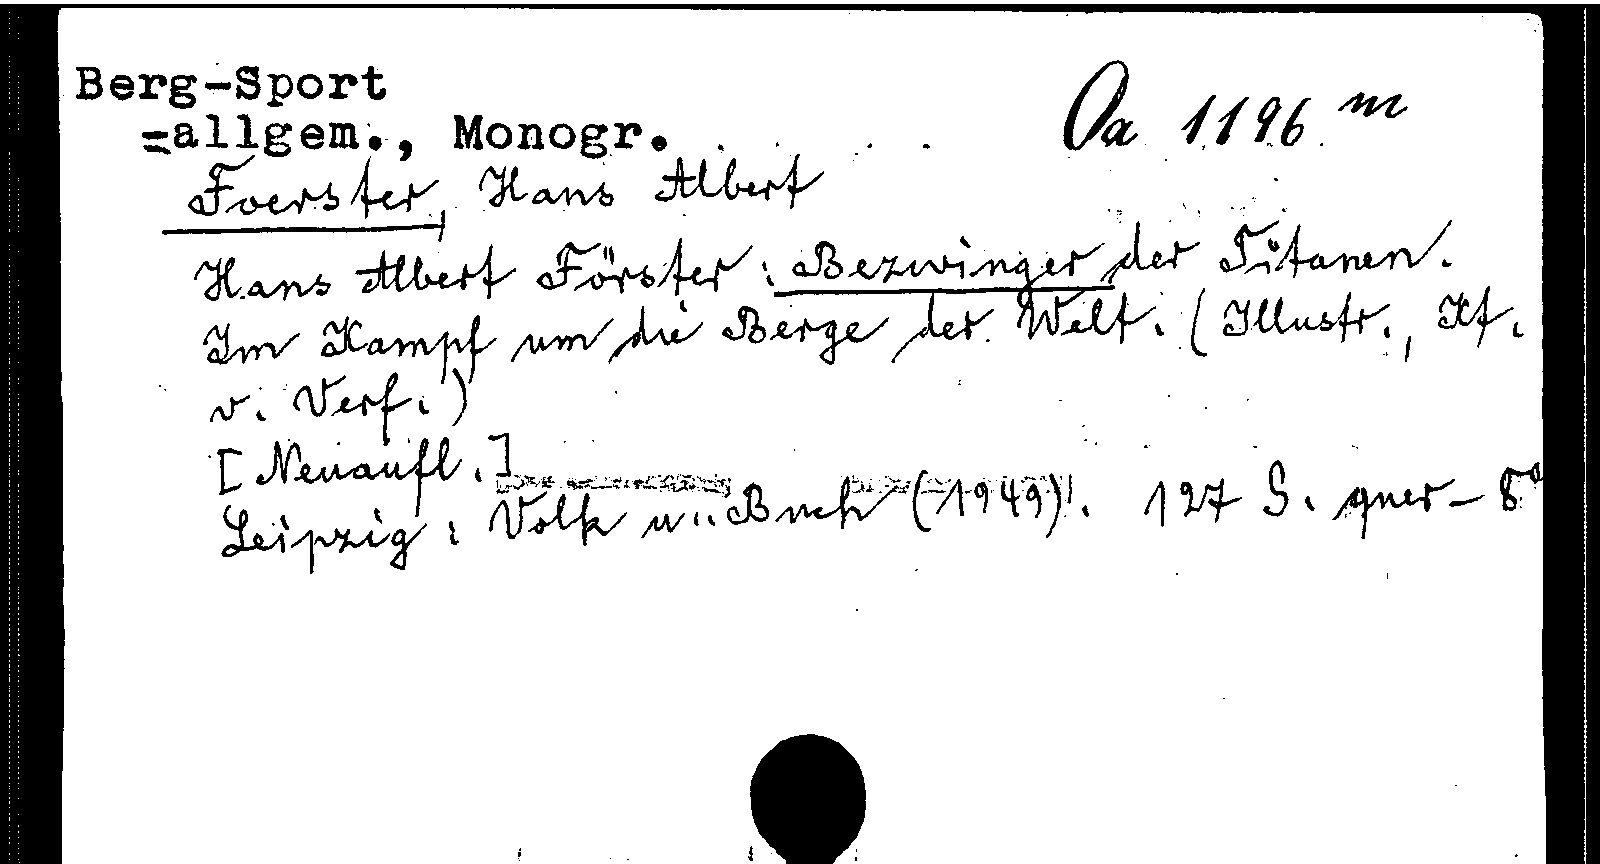 Berg-Sport
=allgem., Monogr.
Oa 1196 m
Foerster, Hans Albert
Hans Albert Förster: Bezwinger der Titanen.
Im Kampf um die Berge der Welt. (Illustr., Kt.
v. Verf.)
[Neuaufl.]
Leipzig: Volk u. Buch (1949). 127 S. quer-8°